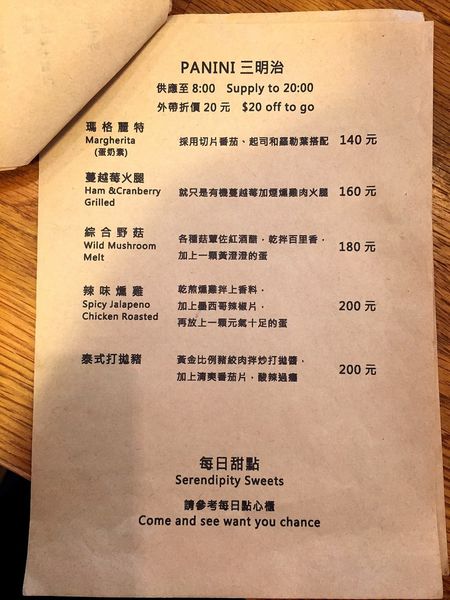 PANINI 三明治
供應至 8:00 Supply to 20:00
外帶折價 20 元 $20 off to go
瑪格麗特
Margherita
(蛋奶素)
採用切片番茄、起司和羅勒葉搭配 140 元
蔓越莓火腿
Ham &Cranberry
Grilled
就只是有機蔓越莓加煙燻雞肉火腿 160 元
綜合野菇
Wild Mushroom
Melt
各種菇蕈佐紅酒醋，乾拌百里香，
加上一顆黃澄澄的蛋
180 元
辣味燻雞
Spicy Jalapeno
Chicken Roasted
乾煎燻雞拌上香料，
加上墨西哥辣椒片，
再放上一顆元氣十足的蛋
200 元
泰式打拋豬
黃金比例豬絞肉拌炒打拋醬，
加上清爽番茄片，酸辣過癮
200 元
每日甜點
Serendipity Sweets
請參考每日點心櫃
Come and see want you chance